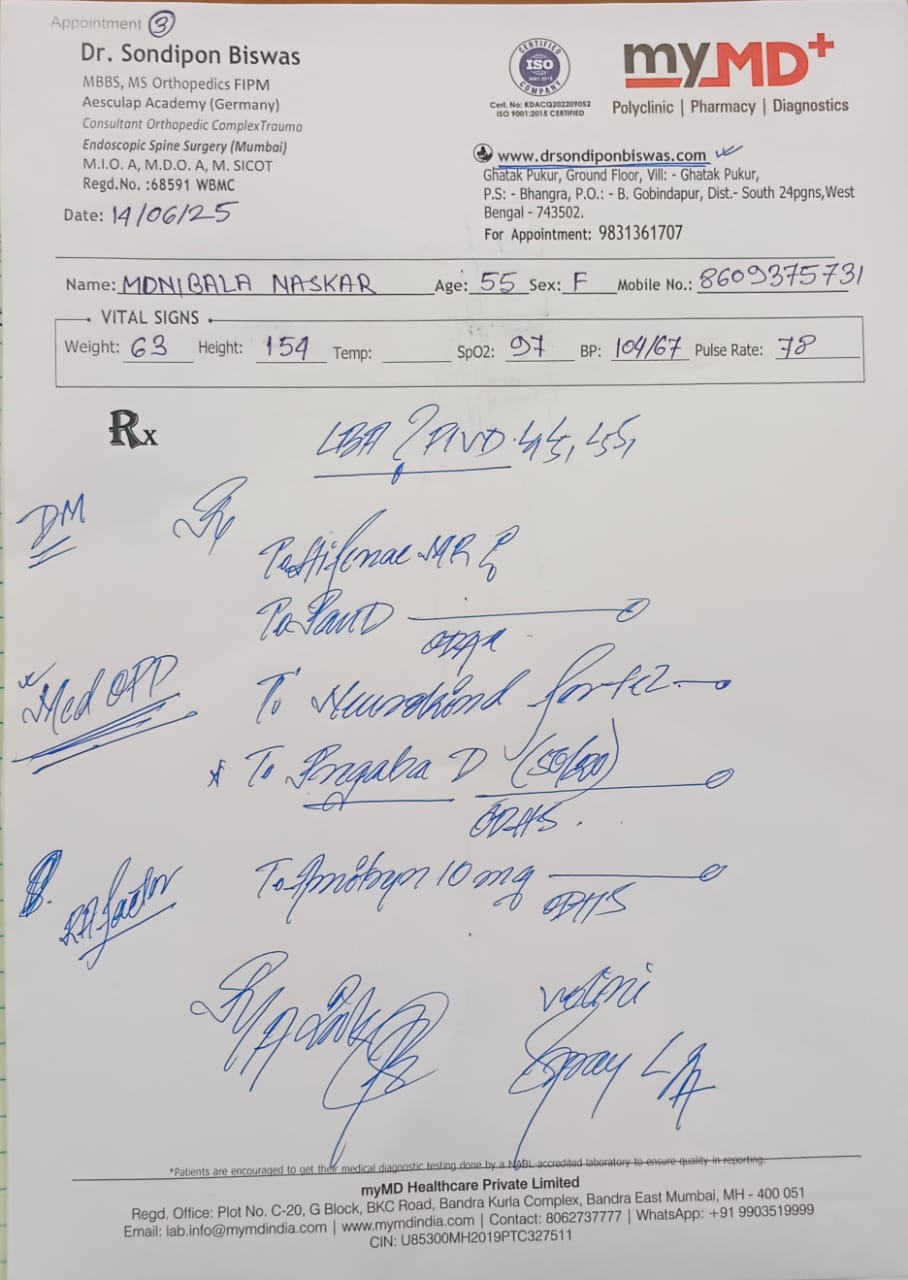 Appointment 3
Dr. Sondipon Biswas
MBBS, MS Orthopedics FIPM
Aesculap Academy (Germany)
Consultant Orthopedic ComplexTrauma
Endoscopic Spine Surgery (Mumbai)
M.I.O. A, M.D.O. A, M. SICOT
Regd.No. :68591 WBMC
Date: 14/06/25
CERTIFIED
ISO
9001:2015
COMPANY
Cert. No: KDACQ202209052
ISO 9001:2015 CERTIFIED
myMD+
Polyclinic | Pharmacy | Diagnostics
www.drsondiponbiswas.com
Ghatak Pukur, Ground Floor, Vill: - Ghatak Pukur,
P.S: - Bhangra, P.O.: - B. Gobindapur, Dist.- South 24pgns,West
Bengal - 743502.
For Appointment: 9831361707
Name: MONIBALA NASKAR Age: 55 Sex: F Mobile No.: 8609375731
VITAL SIGNS
Weight: 63 Height: 154 Temp: SpO2: 97 BP: 104/67 Pulse Rate: 78
Rx
LBA ? PIVD
DM
MR
Pan D
Med OPD
Neurokind forte
Pregaba D
ODHS
RA factor
10 mg
ODHS
volini
Spray L A
*Patients are encouraged to get their medical diagnostic testing done by a NABL accredited laboratory to ensure quality in reporting.
myMD Healthcare Private Limited
Regd. Office: Plot No. C-20, G Block, BKC Road, Bandra Kurla Complex, Bandra East Mumbai, MH - 400 051
Email: lab.info@mymdindia.com | www.mymdindia.com | Contact: 8062737777 | WhatsApp: +91 9903519999
CIN: U85300MH2019PTC327511